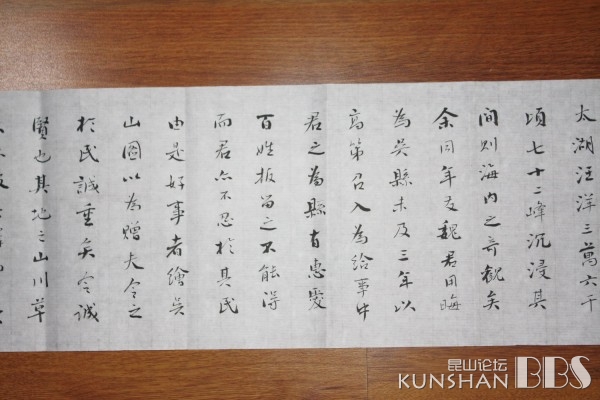 太湖汪洋三萬六千
頃七十二峰沉浸其
間则海内之奇觀矣
余同年友魏君用晦
為吳縣未及三年以
高第召入為給事中
君之為縣有惠愛
百姓扳留之不能得
而君亦不忍於其民
由是好事者繪吳
山圖以為贈夫令之
於民誠重矣令誠
賢也其地之山川草
昆山论坛
KUNSHAN BBS